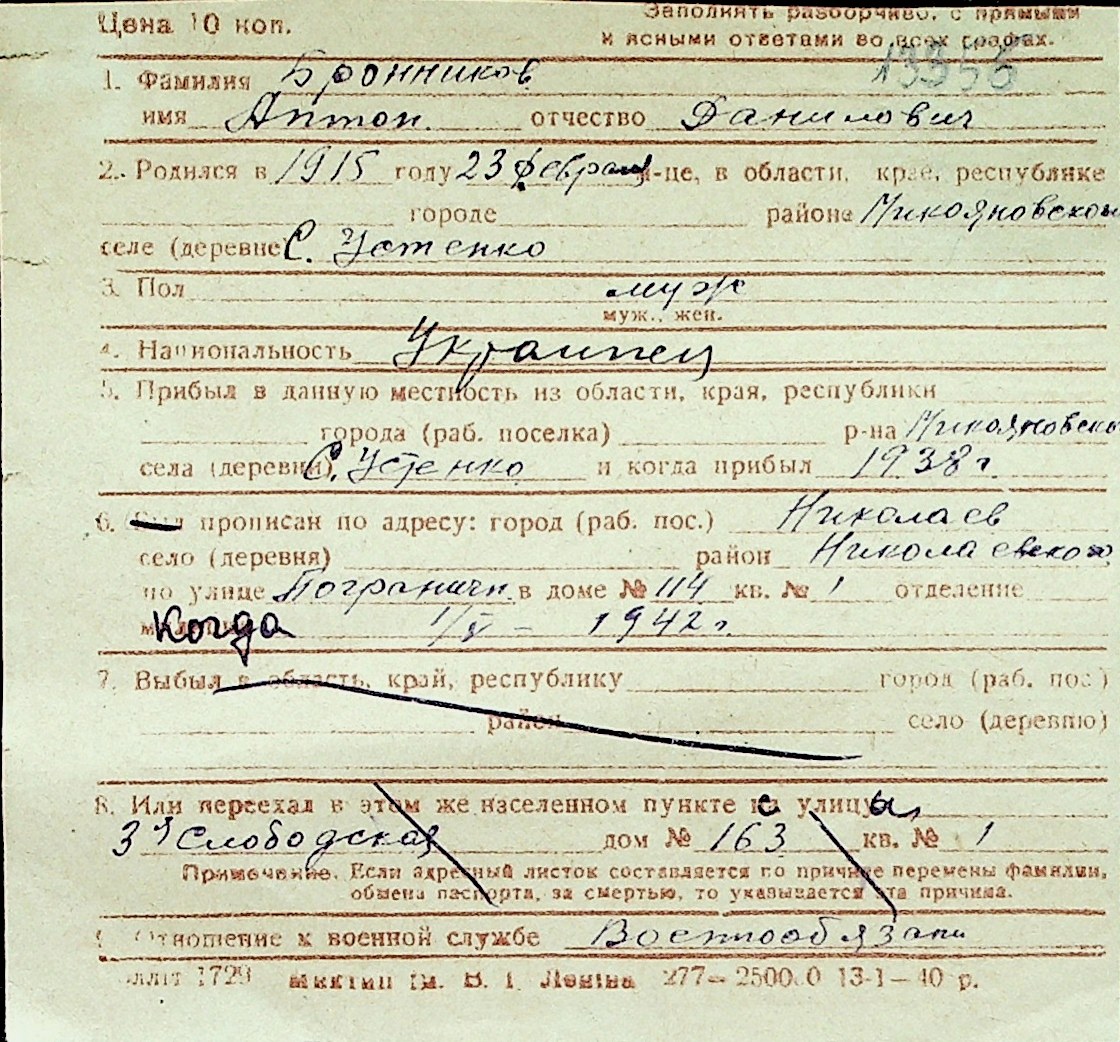 Цена 10 коп.
Заполнять разборчиво, с прямыми
и ясными ответами во всех графах.
1. Фамилия Бронников
имя Антон отчество Данилович
2. Родился в 1915 году 23 февраля м-це, в области, крае, республике
городе районе Микояновском
селе (деревне) С. Устенко
3. Пол муж
муж., жен.
4. Национальность Украинец
5. Прибыл в данную местность из области, края, республики
города (раб. поселка) р-на Микояновско
села (деревни) С. Устенко и когда прибыл 1938 г.
6. Был прописан по адресу: город (раб. пос.) Николаев
село (деревня) район Николаевского
по улице Погранични. в доме № 114 кв. № 1 отделение
Когда 1/V – 1942 г.
7. Выбыл в область, край, республику город (раб. пос.)
район село (деревню)
8. Или переехал в этом же населенном пункте с улицы
3я Слободская дом № 163 кв. № 1
Примечание. Если адресный листок составляется по причине перемены фамилии,
обмена паспорта, за смертью, то указывается эта причина.
9. Отношение к военной службе Военнообязанн
1729 им. В. І. Леніна 277– 13-1–40 р.